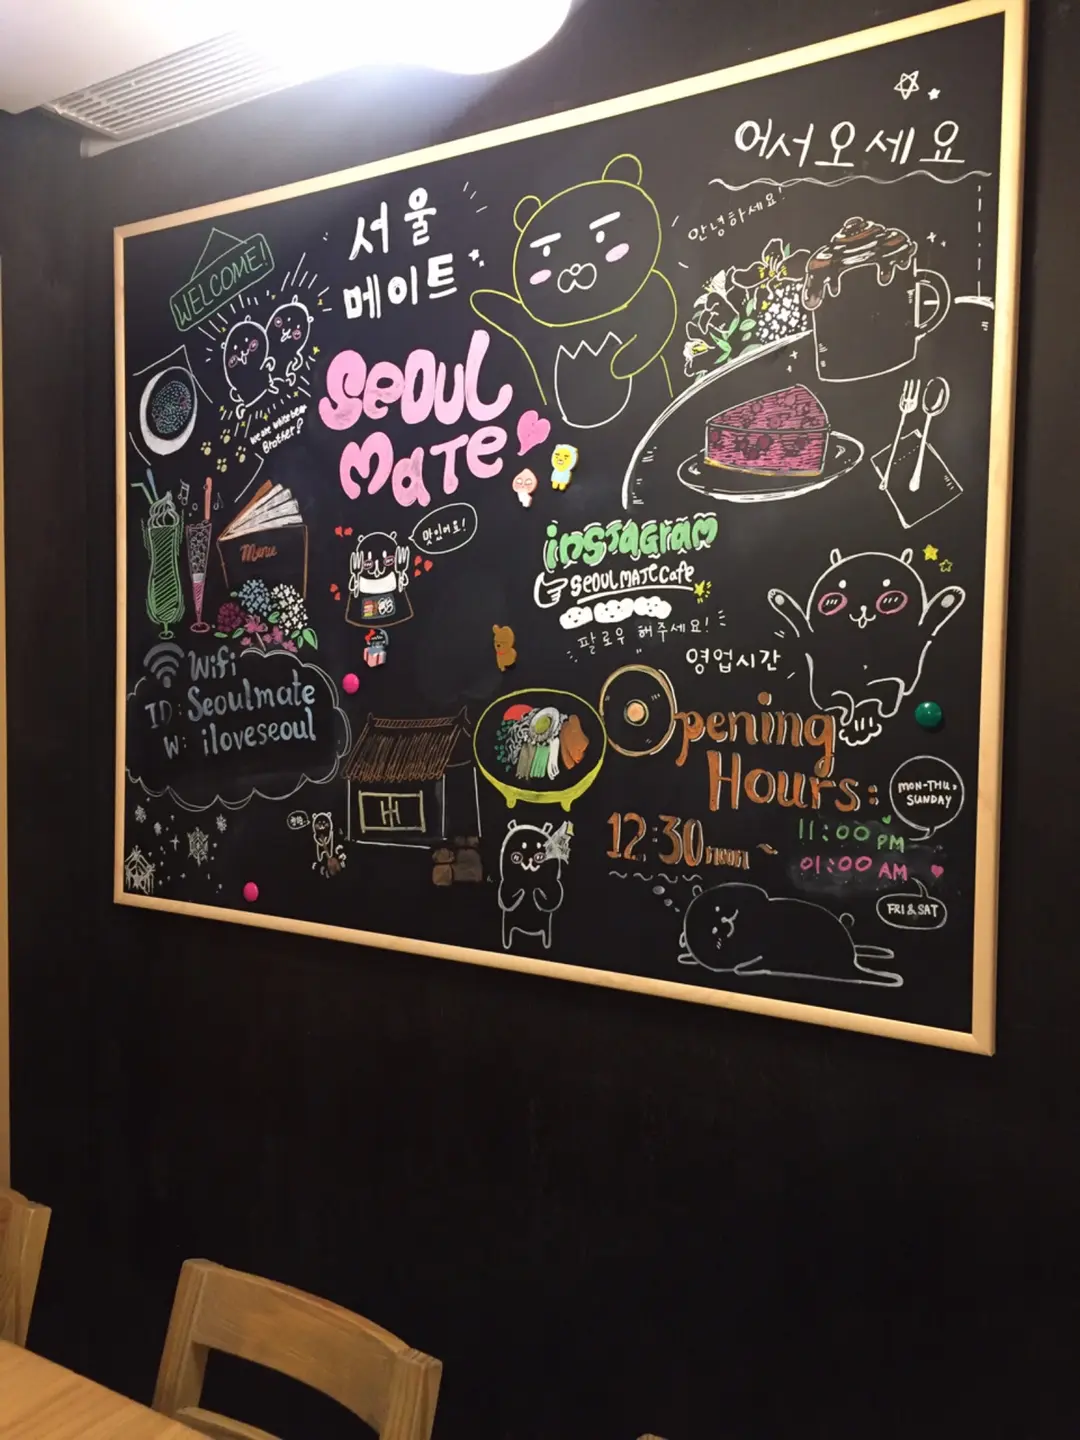 어서오세요
안녕하세요!
서울
메이트
WELCOME!
Seoul
Mate
we are white bear
Brother?
Menu
맛있어요!
instagram
SEOULMATECafe
팔로우 해주세요!
영업시간
Wifi
ID: Seoulmate
W: iloveseoul
Opening
Hours:
MON-THU,
SUNDAY
12:30noon ~
11:00 PM
01:00 AM
FRI & SAT